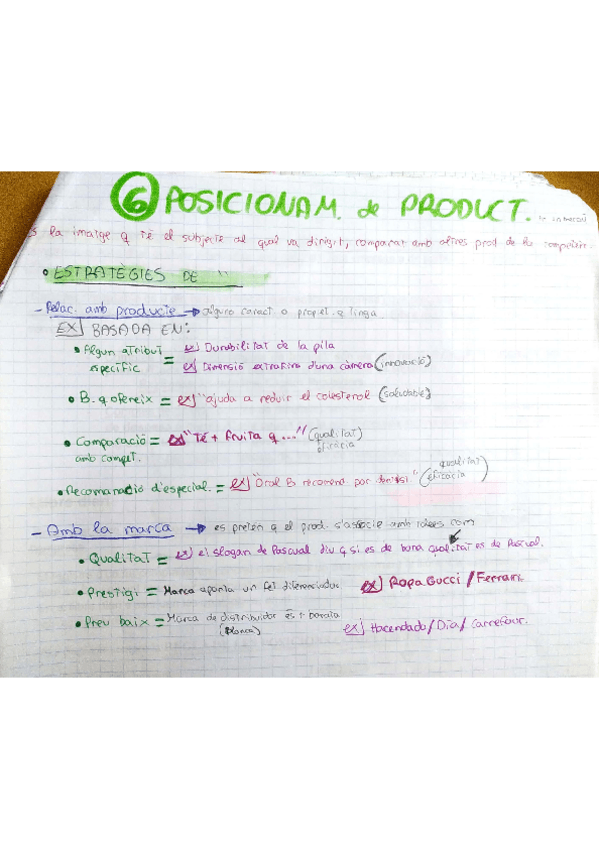 ⑥ POSICIONAM. de PRODUCT.
És la imatge q té el subjecte al qual va dirigit, comparat amb altres prod de la competèn.
• ESTRATÈGIES DE "
- Relac. amb producte → alguna caract o propiet. q tinga
EX) BASADA EN:
• Algun atribut específic = ex) Durabilitat de la pila
ex) Dimensió extrafina d'una càmera (innovació)
• B. q ofereix = ex) "ajuda a reduir el colesterol (saludable)
• Comparació amb compet. = ex) "Té + fruita q ..." (qualitat) eficàcia
• Recomanació d'especial. = ex) "Oral B recomena por dentist" (qualitat eficàcia)
- Amb la marca → es pretén q el prod. s'associe amb idees com
• Qualitat = ex) el slogan de Pascual diu q si es de bona qualitat es de Pascual.
• Prestigi = Marca aporta un fet diferenciador ex) Ropa Gucci / Ferrari.
• Preu baix = Marca de distribuidor és + barata (blanca) ex) Hacendado / Dia / Carrefour.